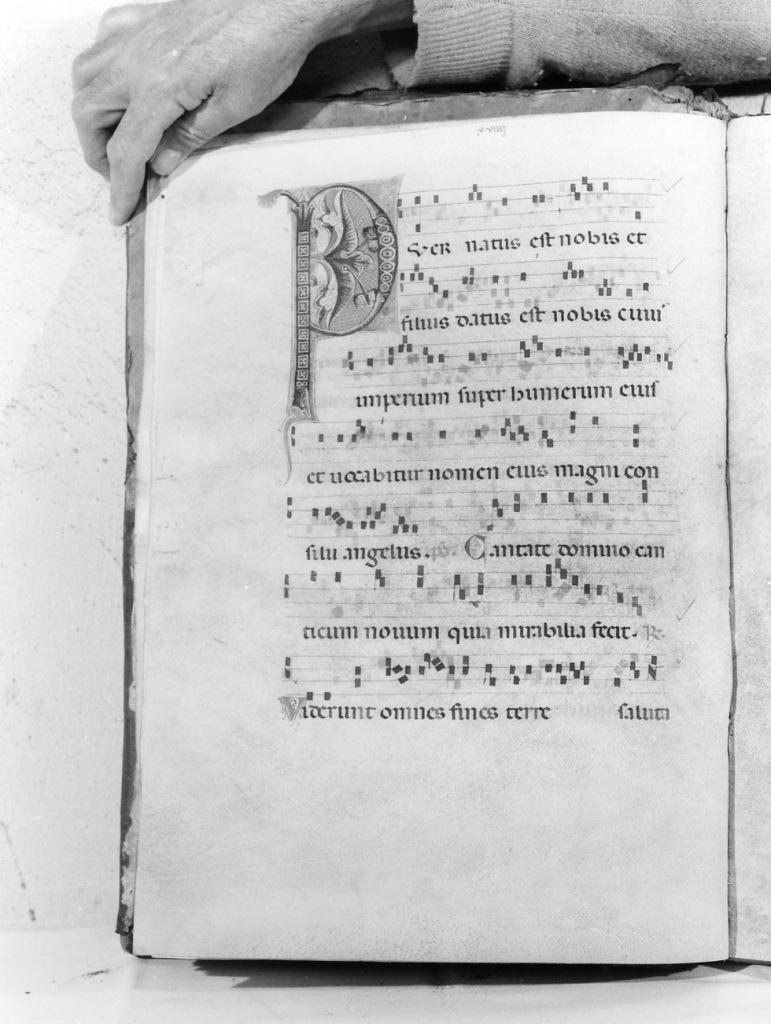 xviiij
PUER natus est nobis et
filius datus est nobis cuius
imperium super humerum eius
et uocabitur nomen eius magni con
silii angelus. ps. Cantate domino can
ticum nouum quia mirabilia fecit. R.
Viderunt omnes fines terre saluta